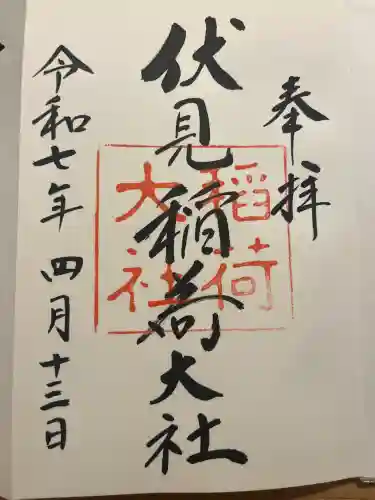 奉拝
伏見稲荷大社
稲荷
大社
令和七年四月十三日